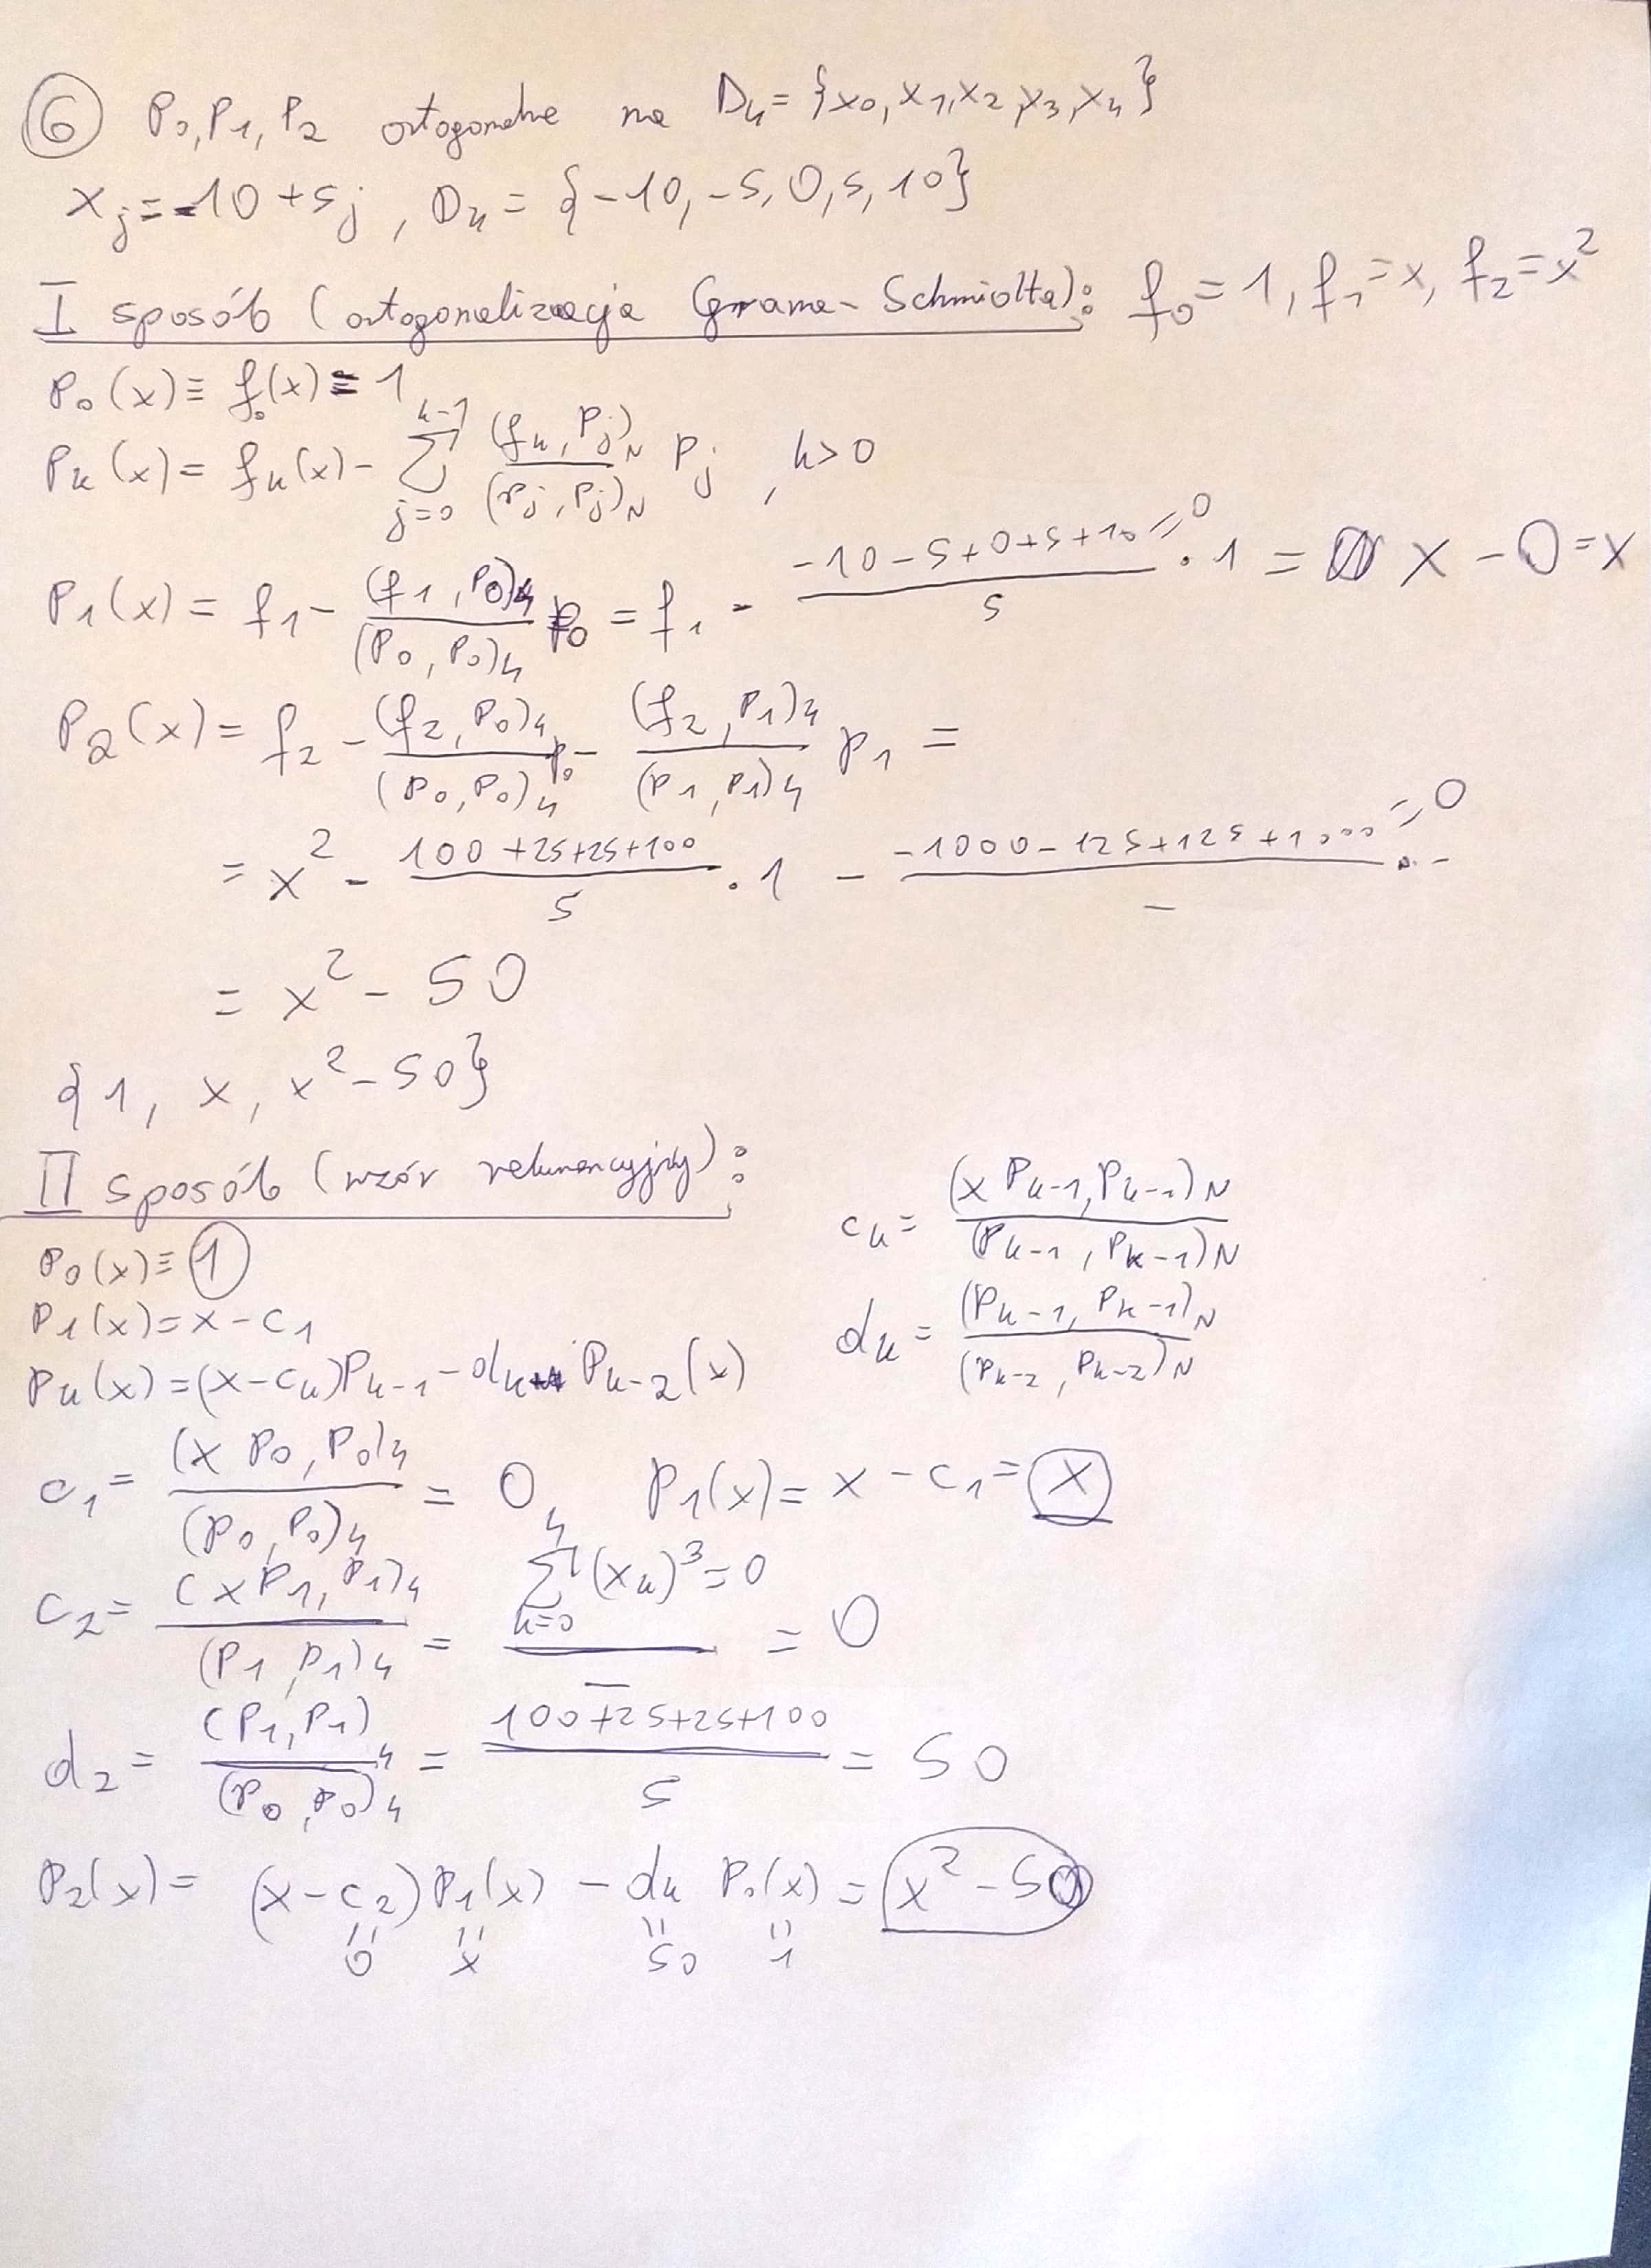 ⑥ P₀, P₁, P₂ ortogonalne na D₄ = {x₀, x₁, x₂, x₃, x₄}
x_j = -10 + 5j, D₄ = {-10, -5, 0, 5, 10}
I sposób (ortogonalizacja Grama-Schmidta): f₀ = 1, f₁ = x, f₂ = x²
P₀(x) ≡ f₀(x) ≡ 1
P_k(x) = f_k(x) - ∑_{j=0}^{k-1} (f_k, P_j)_N / (P_j, P_j)_N P_j, k > 0
P₁(x) = f₁ - (f₁, P₀)₄ / (P₀, P₀)₄ P₀ = f₁ - (-10-5+0+5+10 = 0) / 5 · 1 = x - 0 = x
P₂(x) = f₂ - (f₂, P₀)₄ / (P₀, P₀)₄ P₀ - (f₂, P₁)₄ / (P₁, P₁)₄ P₁ =
= x² - (100+25+25+100) / 5 · 1 - (-1000-125+125+1000 = 0) / - · -
= x² - 50
{1, x, x² - 50}
II sposób (wzór rekurencyjny):
c_k = (x P_{k-1}, P_{k-1})_N / (P_{k-1}, P_{k-1})_N
P₀(x) ≡ 1
P₁(x) = x - c₁
d_k = (P_{k-1}, P_{k-1})_N / (P_{k-2}, P_{k-2})_N
P_k(x) = (x - c_k) P_{k-1} - d_k P_{k-2}(x)
c₁ = (x P₀, P₀)₄ / (P₀, P₀)₄ = 0, P₁(x) = x - c₁ = x
c₂ = (x P₁, P₁)₄ / (P₁, P₁)₄ = (∑_{k=0}^{4} (x_k)³ = 0) / - = 0
d₂ = (P₁, P₁)₄ / (P₀, P₀)₄ = (100+25+25+100) / 5 = 50
P₂(x) = (x - c₂) P₁(x) - d_k P₀(x) = x² - 50
0 x 50 1